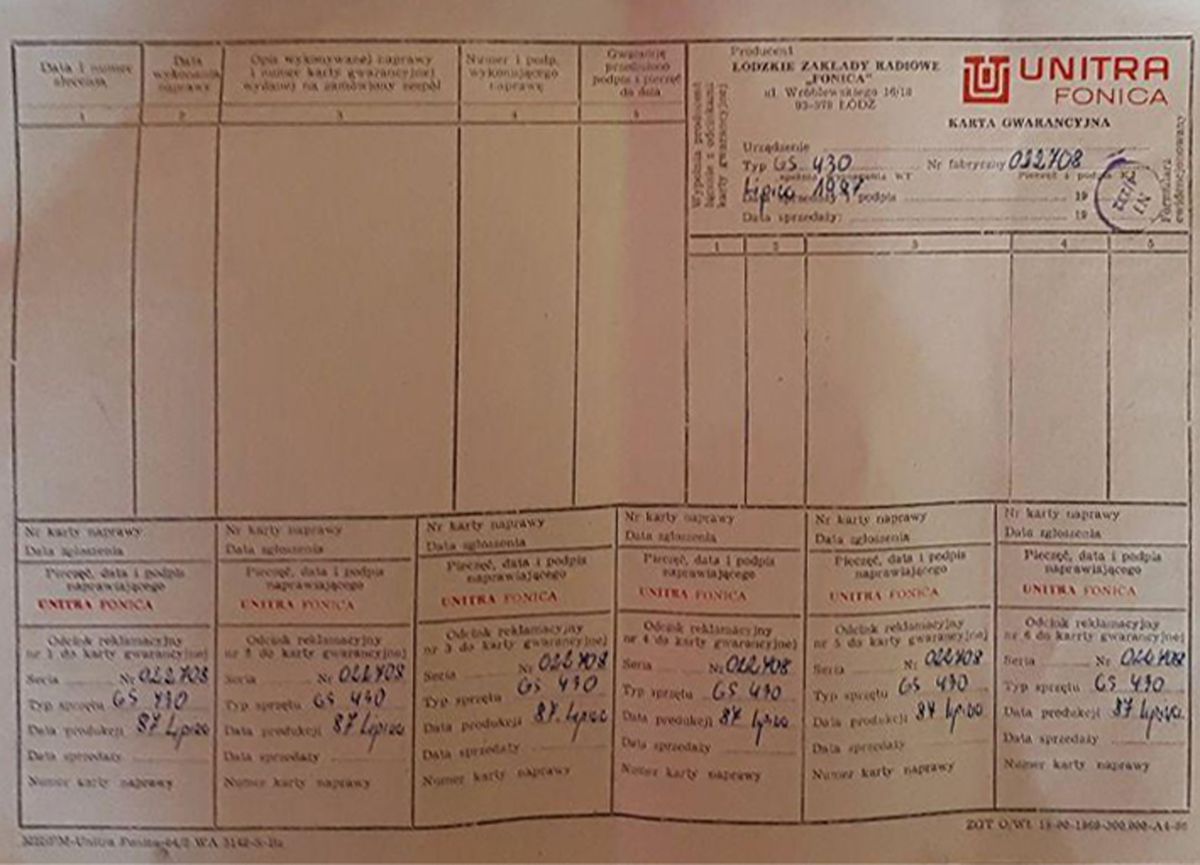 Data i numer
zlecenia
Data
wykonania
naprawy
Opis wykonywanej naprawy
i numer karty gwarancyjnej
wydanej na zamówiony zespół
Numer i podp.
wykonującego
naprawę
Gwarancję
przedłużono
podpis i pieczęć
do dnia
1 2 3 4 5
Producent
ŁÓDZKIE ZAKŁADY RADIOWE
„FONICA”
ul. Wróblewskiego 16/18
93-578 ŁÓDŹ
UNITRA
FONICA
KARTA GWARANCYJNA
Wypełnia producent
łącznie z odcinkami
karty gwarancyjnej
Urządzenie
Typ GS 430 Nr fabryczny 022708
Lipiec 1987
Data sprzedaży i podpis 19
Data sprzedaży: 19
Formularz
ewidencjonowany
1 2 3 4 5
Nr karty naprawy
Data zgłoszenia
Pieczęć, data i podpis
naprawiającego
UNITRA FONICA
Odcinek reklamacyjny
nr 1 do karty gwarancyjnej
Seria Nr 022708
Typ sprzętu GS 430
Data produkcji 87 Lipiec
Data sprzedaży
Numer karty naprawy
Nr karty naprawy
Data zgłoszenia
Pieczęć, data i podpis
naprawiającego
UNITRA FONICA
Odcinek reklamacyjny
nr 2 do karty gwarancyjnej
Seria Nr 022708
Typ sprzętu GS 430
Data produkcji 87 Lipiec
Data sprzedaży
Numer karty naprawy
Nr karty naprawy
Data zgłoszenia
Pieczęć, data i podpis
naprawiającego
UNITRA FONICA
Odcinek reklamacyjny
nr 3 do karty gwarancyjnej
Seria Nr 022708
Typ sprzętu GS 430
Data produkcji 87 Lipiec
Data sprzedaży
Numer karty naprawy
Nr karty naprawy
Data zgłoszenia
Pieczęć, data i podpis
naprawiającego
UNITRA FONICA
Odcinek reklamacyjny
nr 4 do karty gwarancyjnej
Seria Nr 022708
Typ sprzętu GS 430
Data produkcji 87 Lipiec
Data sprzedaży
Numer karty naprawy
Nr karty naprawy
Data zgłoszenia
Pieczęć, data i podpis
naprawiającego
UNITRA FONICA
Odcinek reklamacyjny
nr 5 do karty gwarancyjnej
Seria Nr 022708
Typ sprzętu GS 430
Data produkcji 87 Lipiec
Data sprzedaży
Numer karty naprawy
Nr karty naprawy
Data zgłoszenia
Pieczęć, data i podpis
naprawiającego
UNITRA FONICA
Odcinek reklamacyjny
nr 6 do karty gwarancyjnej
Seria Nr 022708
Typ sprzętu GS 430
Data produkcji 87 Lipiec
Data sprzedaży
Numer karty naprawy